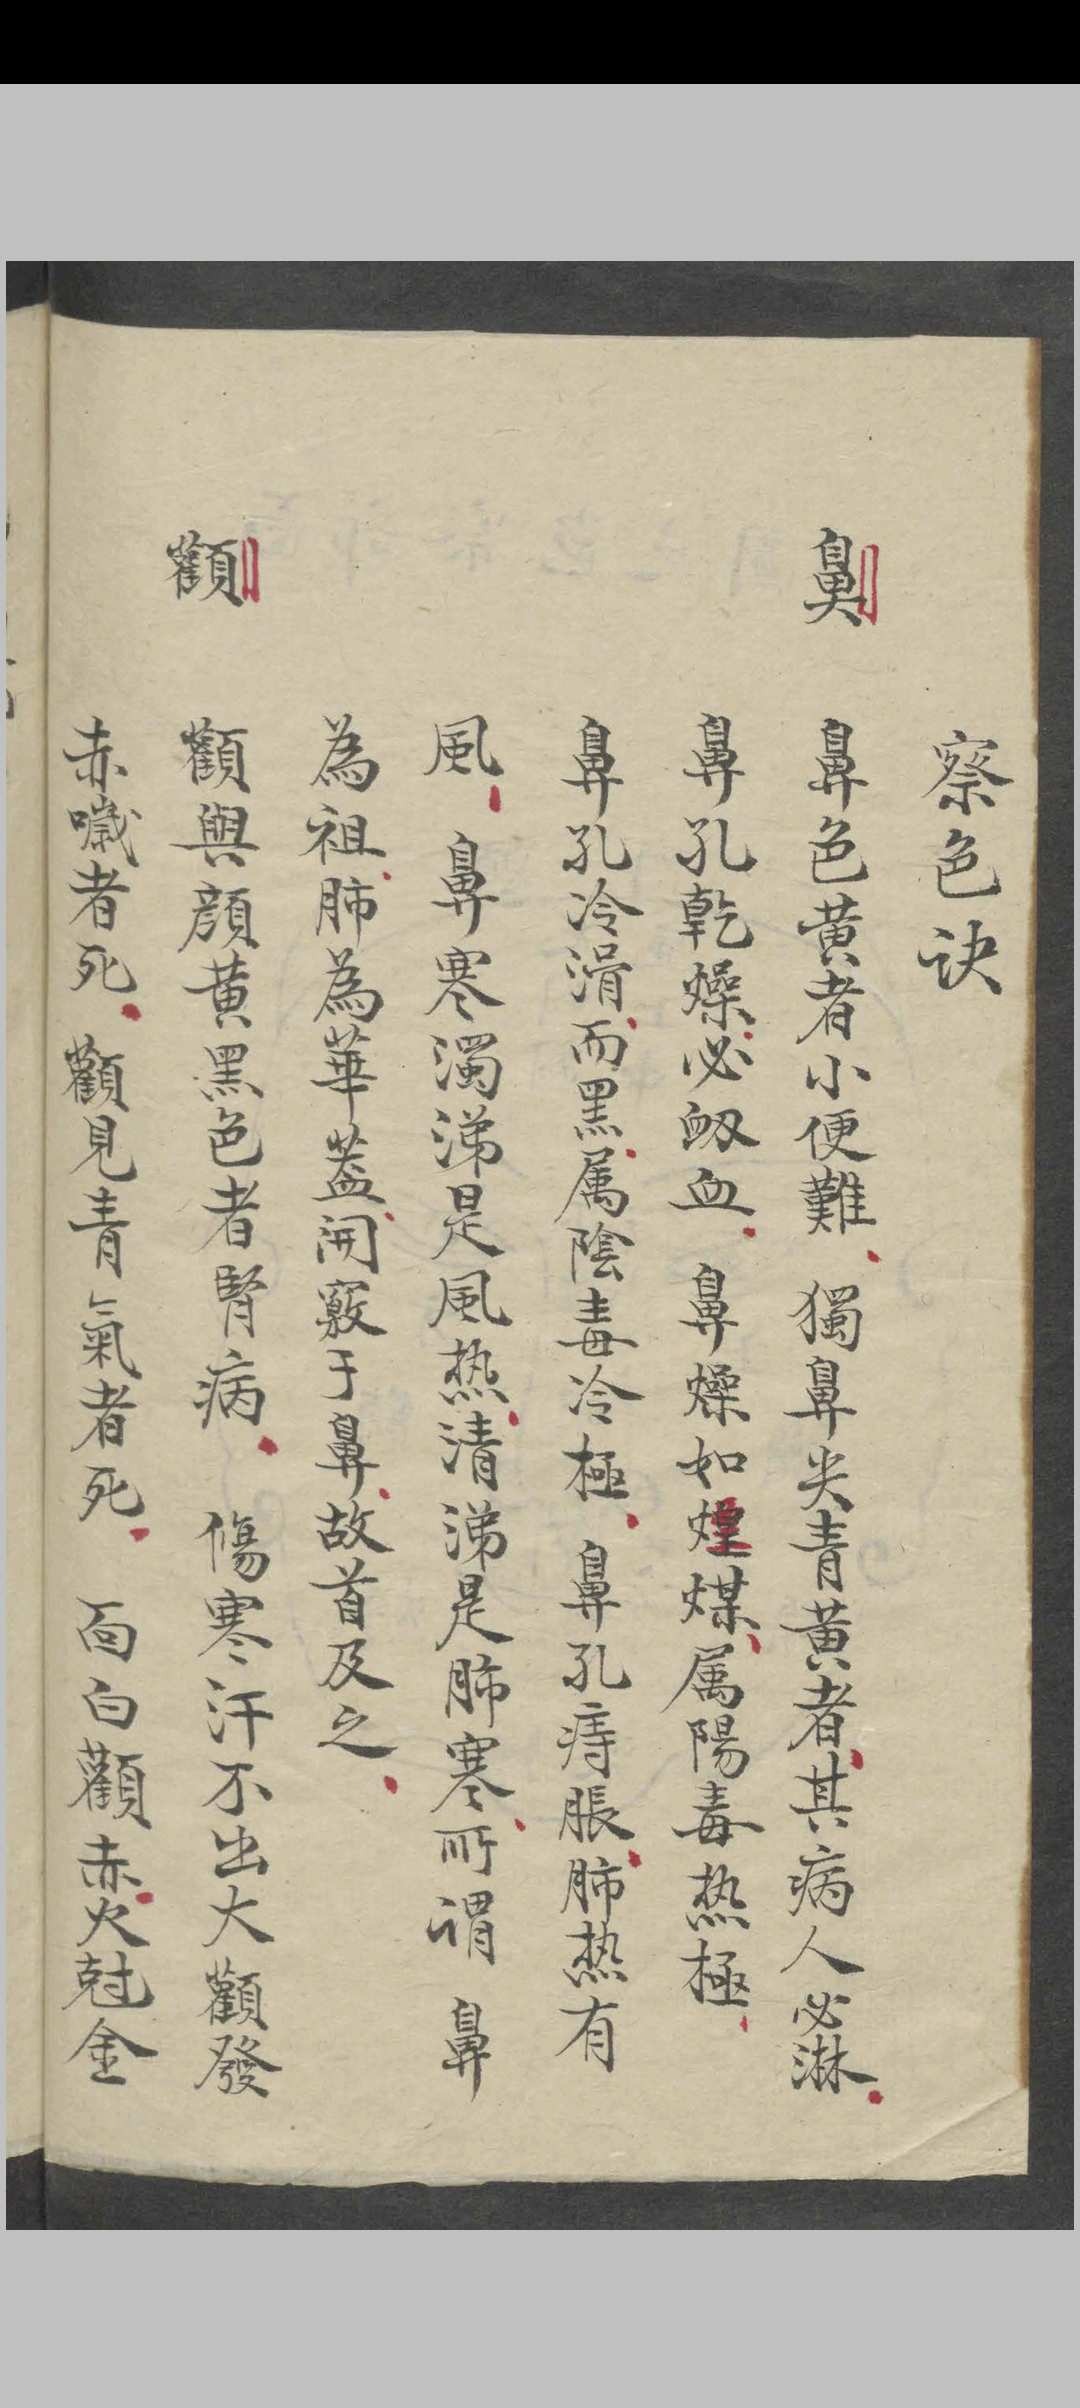 察色诀
鼻
鼻色黄者小便難 獨鼻尖青黄者其病人必淋
鼻孔乾燥必衂血 鼻燥如煌煤属陽毒热極
鼻孔冷滑而黑属陰毒冷極 鼻孔痔脹肺热有
風 鼻寒濁涕是風热清涕是肺寒所谓 鼻
為祖肺為華蓋開竅于鼻故首及之
顴
顴與顔黄黑色者腎病 傷寒汗不出大顴發
赤噦者死 顴見青氣者死 面白顴赤火尅金